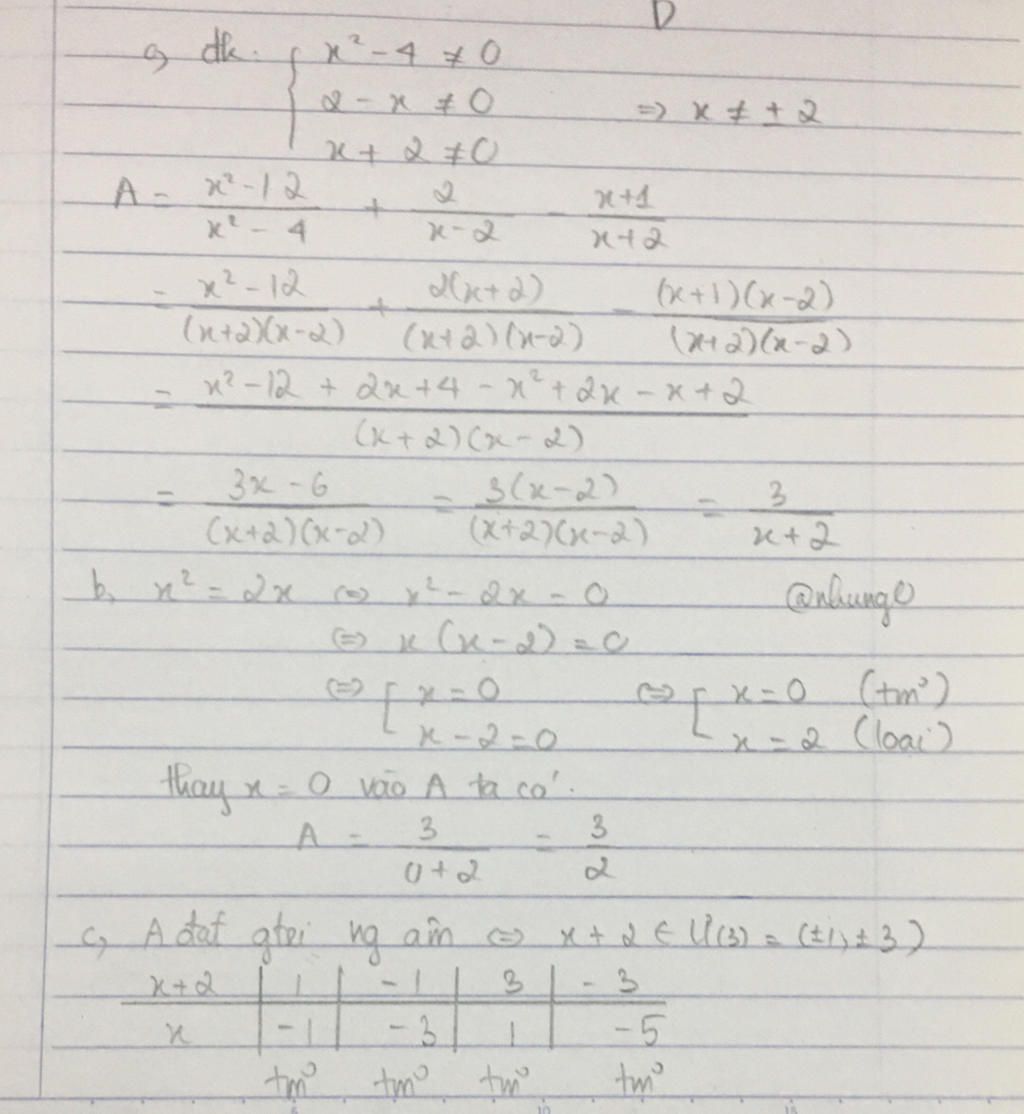 D
a, đk: { x² - 4 ≠ 0
2 - x ≠ 0 => x ≠ ± 2
x + 2 ≠ 0
A = \frac{x² - 12}{x² - 4} + \frac{2}{x - 2} - \frac{x+1}{x+2}
= \frac{x² - 12}{(x+2)(x-2)} + \frac{2(x+2)}{(x+2)(x-2)} - \frac{(x+1)(x-2)}{(x+2)(x-2)}
= \frac{x² - 12 + 2x + 4 - x² + 2x - x + 2}{(x+2)(x-2)}
= \frac{3x - 6}{(x+2)(x-2)} = \frac{3(x-2)}{(x+2)(x-2)} = \frac{3}{x+2}
b, x² = 2x <=> x² - 2x = 0 @nhung0
<=> x (x - 2) = 0
<=> [ x = 0 <=> [ x = 0 (tm)
x - 2 = 0 x = 2 (loại)
thay x = 0 vào A ta có:
A = \frac{3}{0+2} = \frac{3}{2}
c, A đạt gtrị ng âm <=> x + 2 ∈ Ư(3) = (±1, ±3)
x+2 | 1 | -1 | 3 | -3
x | -1 | -3 | 1 | -5
tm tm tm tm